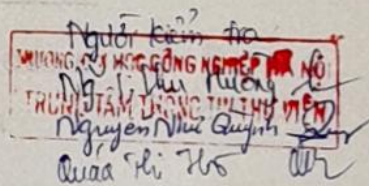 Người kiểm tra
TRƯỜNG ĐẠI HỌC CÔNG NGHIỆP HÀ NỘI
Thu Hường
TRUNG TÂM THÔNG TIN THƯ VIỆN
Nguyễn Như Quỳnh
Quáo Thị